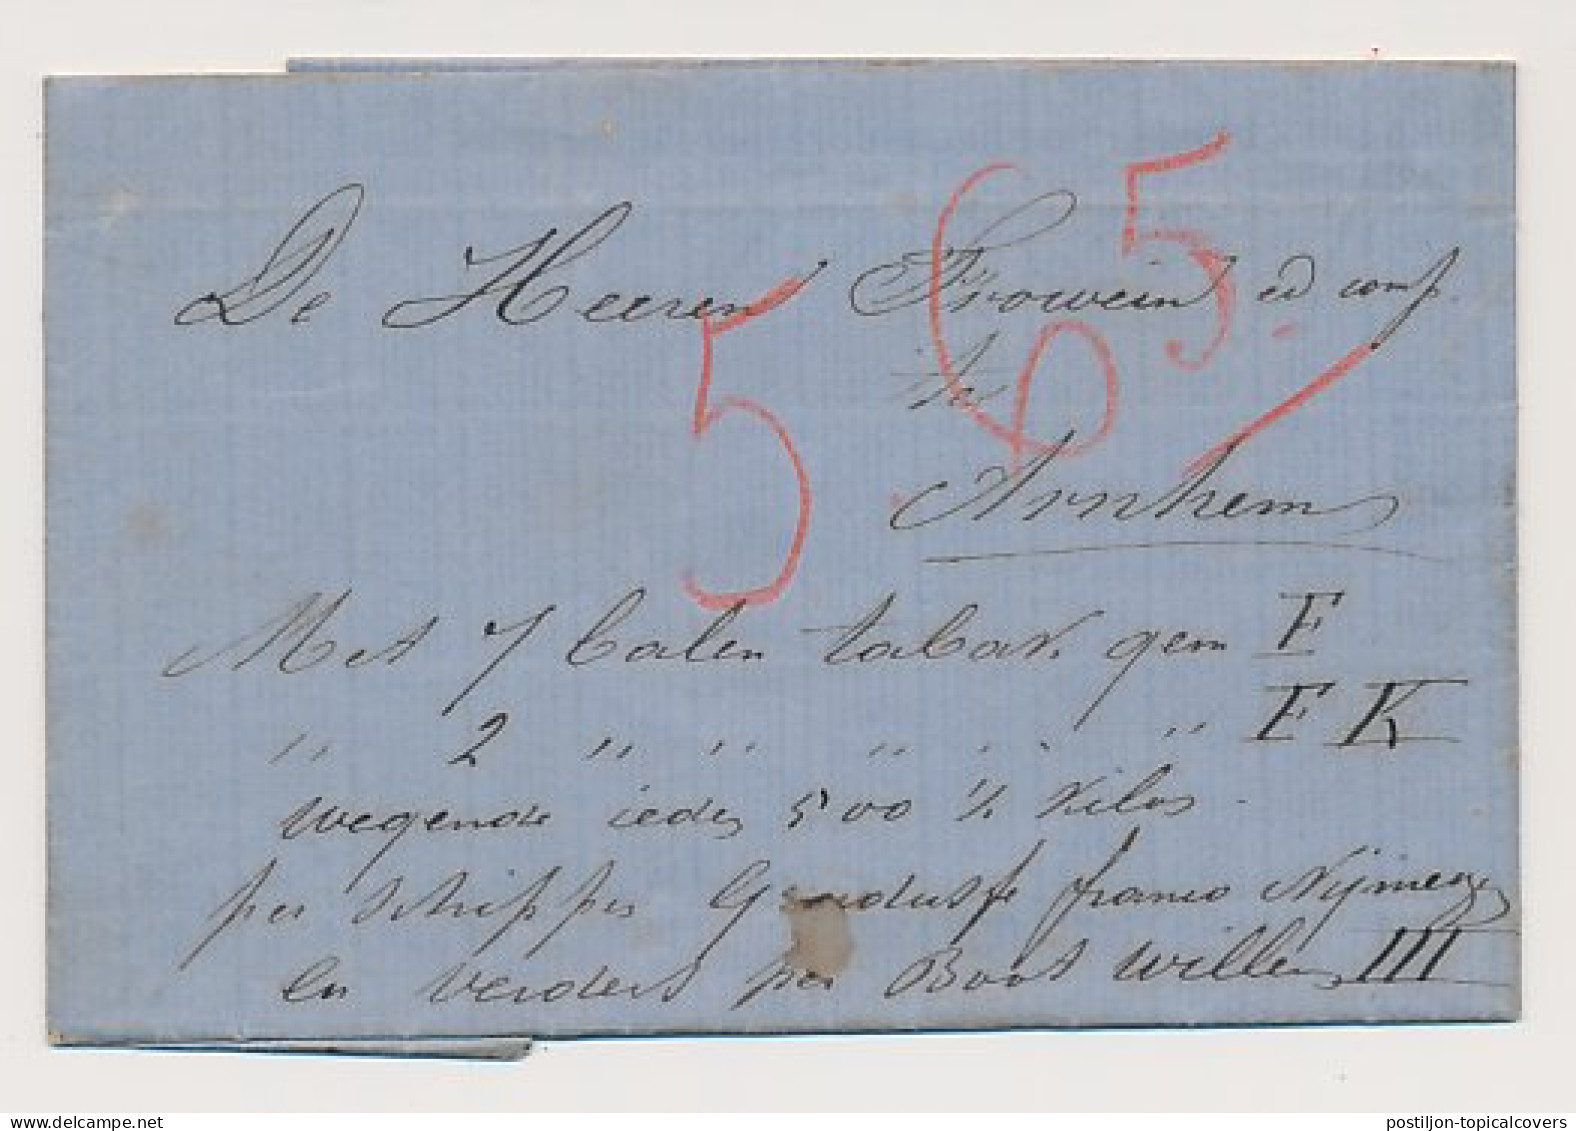 De Heeren Frowein en Comp.
te
Arnhem
5 65
Met 7 balen tabak gem F
" 2 " " " " " F K
wegende ieder 500 ½ Kilos.
per schipper franco Nijmegen
en verders per Boot Willem III
delcampe.net
postiljon-topicalcovers